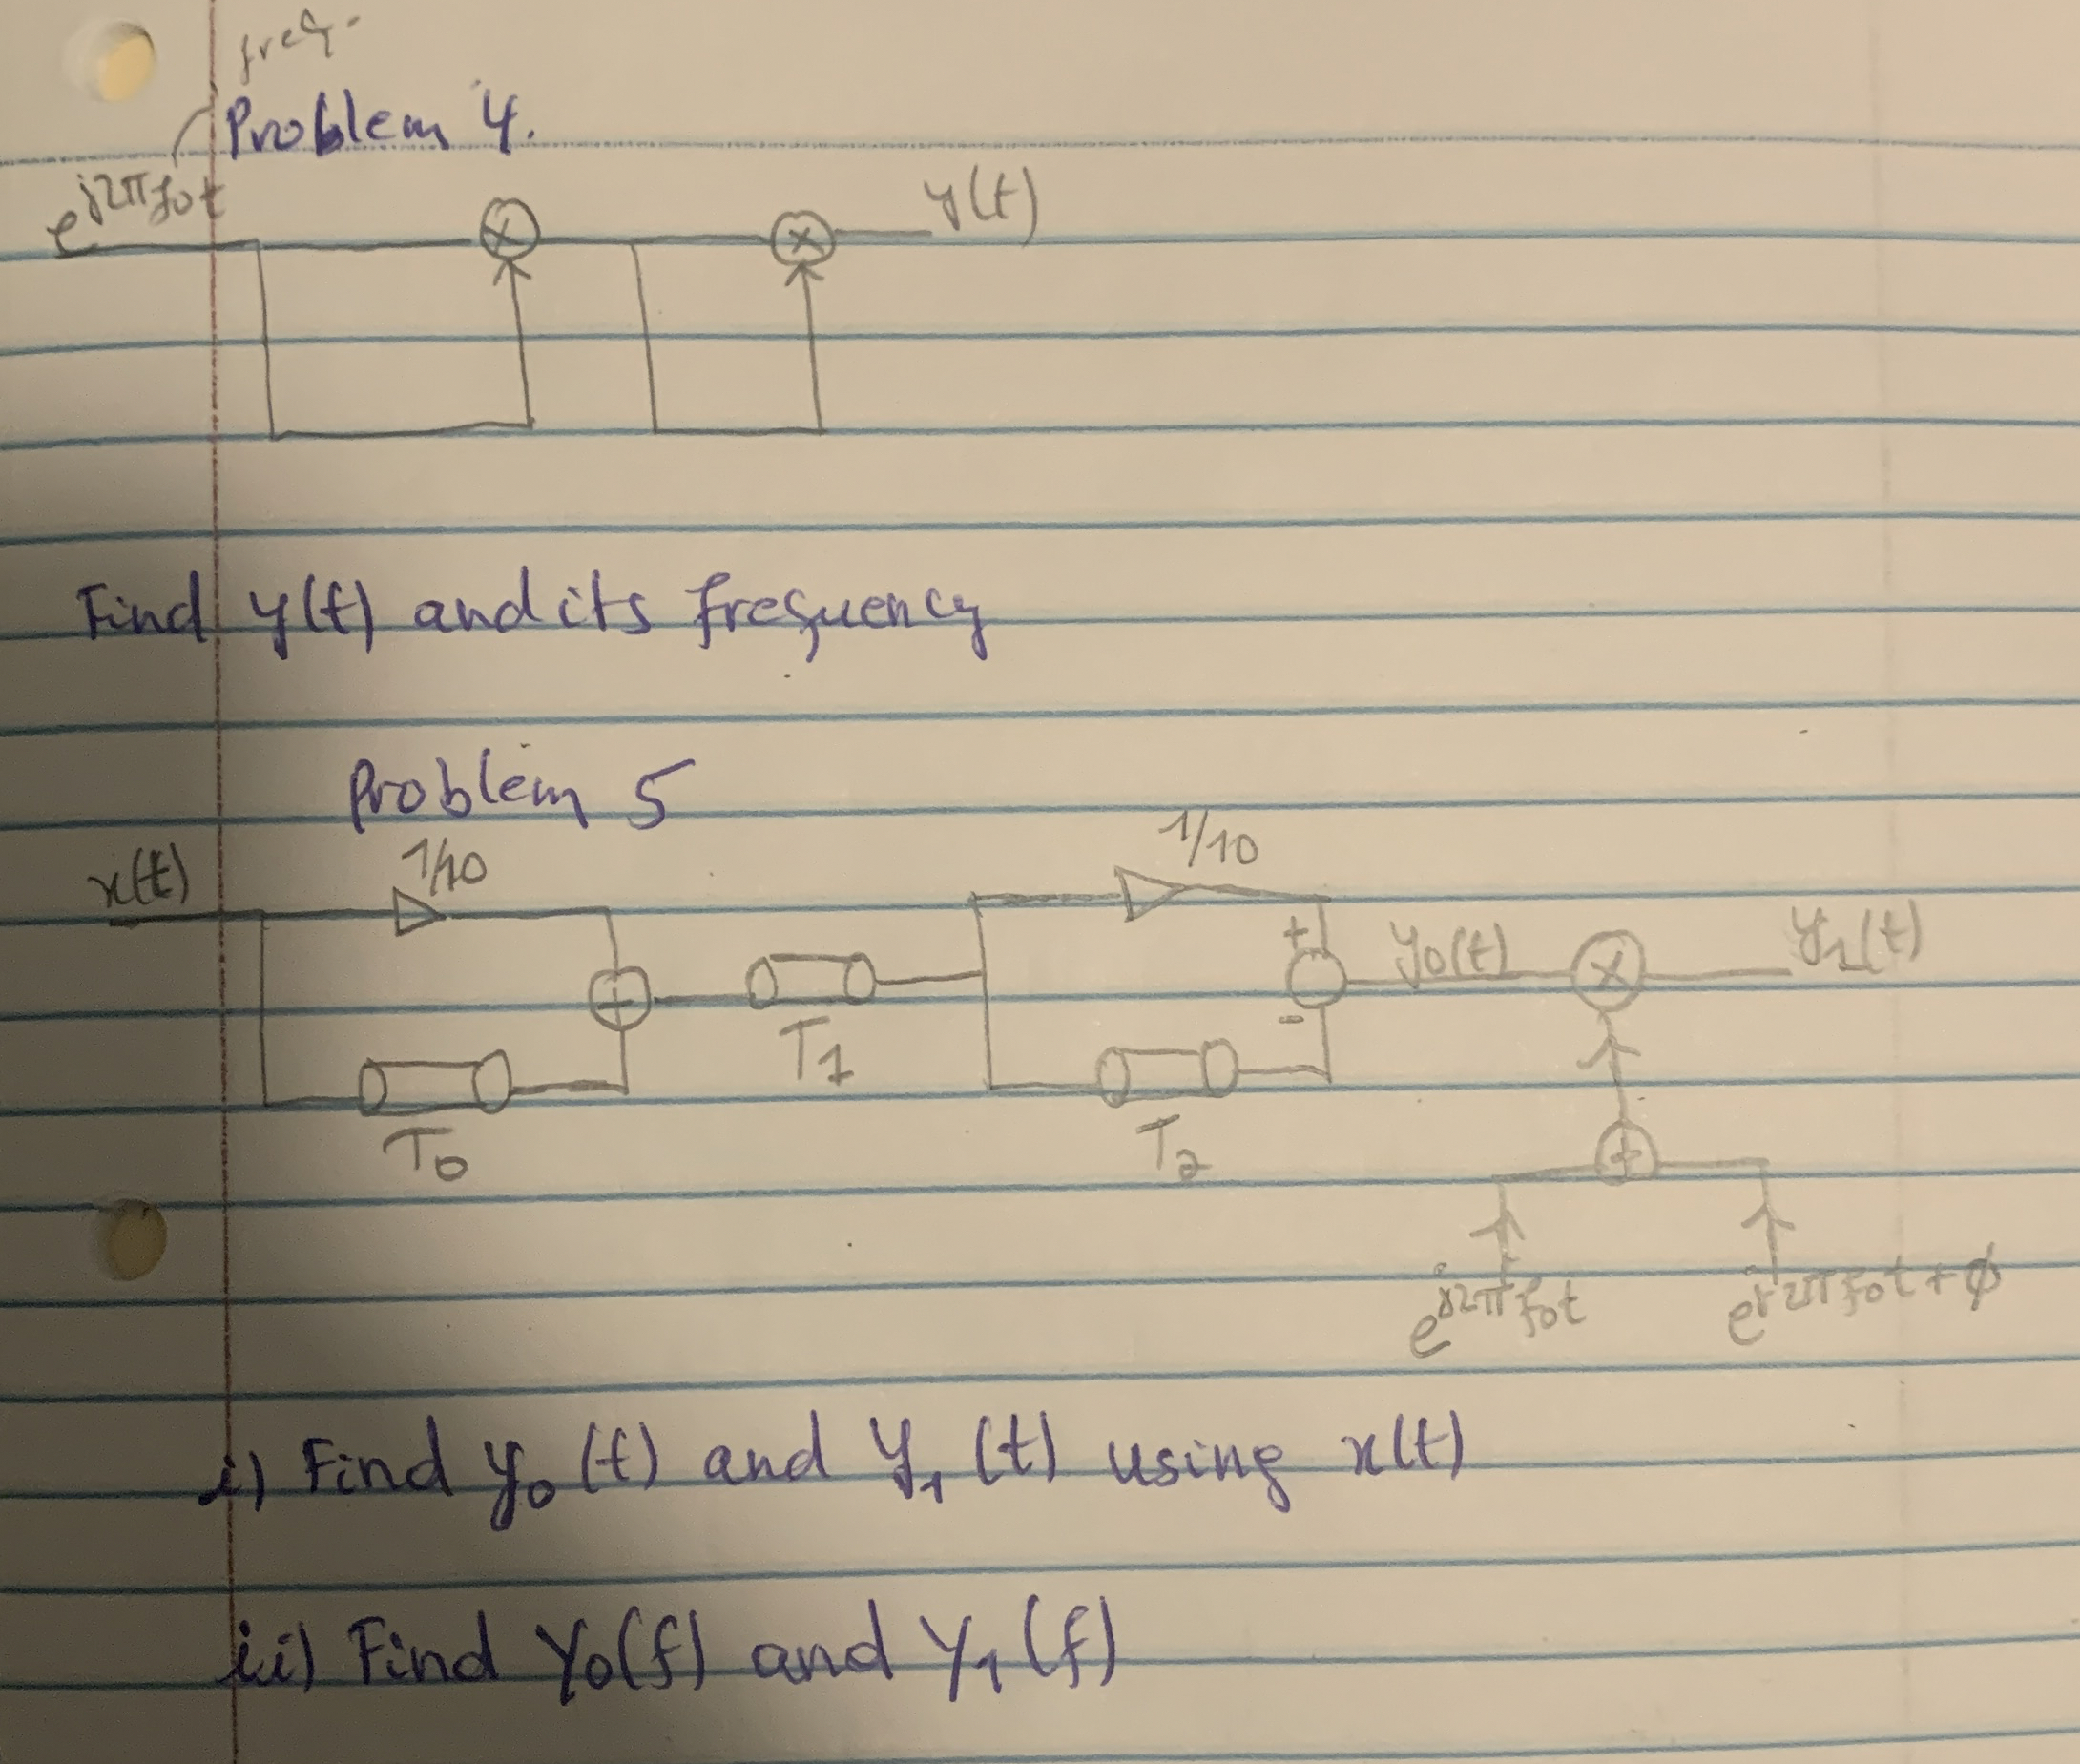 freq.
Problem 4.
e^{j2πf₀t}
y(t)
Find y(t) and its frequency
Problem 5
1/10
1/10
x(t)
+
y₀(t)
y₁(t)
T₁
-
T₀
T₂
e^{j2πf₀t}
e^{j2πf₀t+ϕ}
i) Find y₀(t) and y₁(t) using x(t)
ii) Find Y₀(f) and Y₁(f)